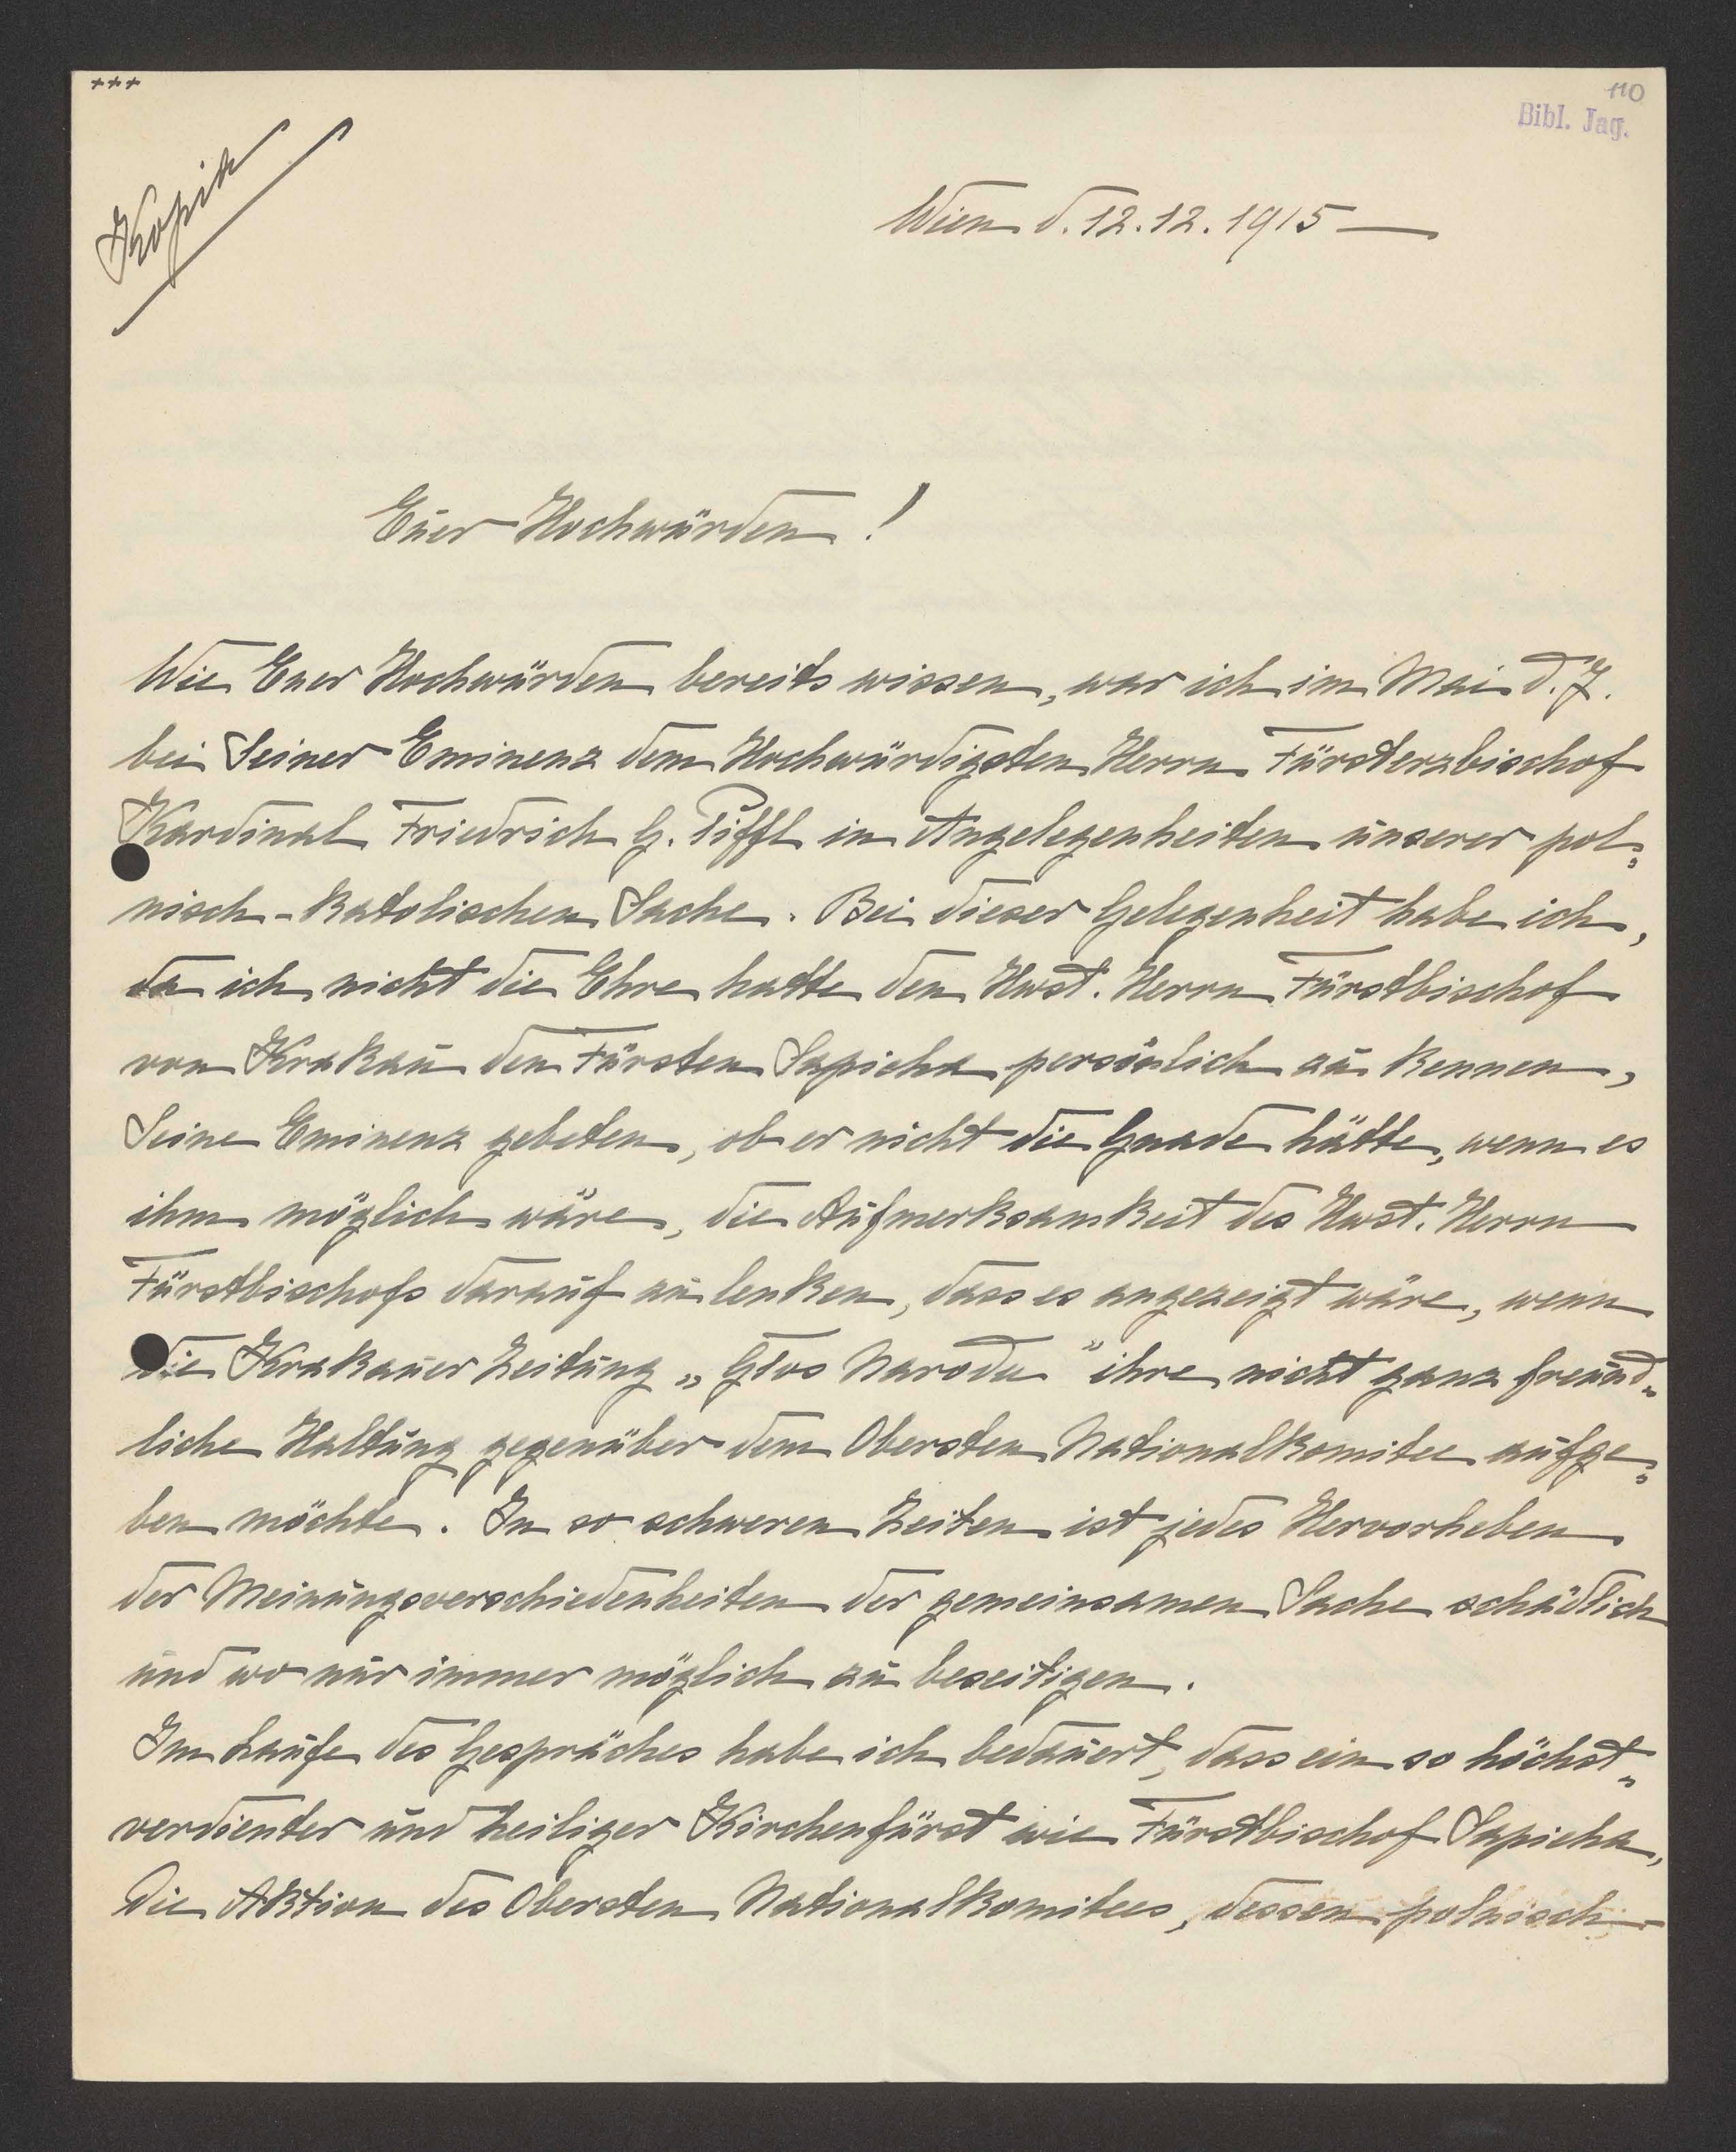 +++
110
Bibl. Jag.
Kopia
Wien d. 12.12.1915 —
Euer Hochwürden!
Wie Euer Hochwürden bereits wissen, war ich im Mai d. J.
bei Seiner Eminenz dem Hochwürdigsten Herrn Fürsterzbischof
Kardinal Friedrich G. Piffl in Angelegenheiten unserer pol„
nisch-katolischen Sache. Bei dieser Gelegenheit habe ich,
da ich nicht die Ehre hatte den Hwst. Herrn Fürstbischof
von Krakau den Fürsten Sapieha persönlich zu kennen,
Seine Eminenz gebeten, ob er nicht die Gnade hätte, wenn es
ihm möglich wäre, die Aufmerksamkeit des Hwst. Herrn
Fürstbischofs darauf zu lenken, dass es angezeigt wäre, wenn
die Krakauer Zeitung „Głos Narodu" ihre nicht ganz freund„
liche Haltung gegenüber dem Obersten Nationalkomitee aufge„
ben möchte. In so schweren Zeiten ist jedes Hervorheben
der Meinungsverschiedenheiten der gemeinsamen Sache schädlich
und wo nur immer möglich zu beseitigen.
Im Laufe des Gespräches habe ich bedauert, dass ein so höchst„
verdienter und heiliger Kirchenfürst wie Fürstbischof Sapieha,
die Aktion des Obersten Nationalkomitees, dessen polnisch-